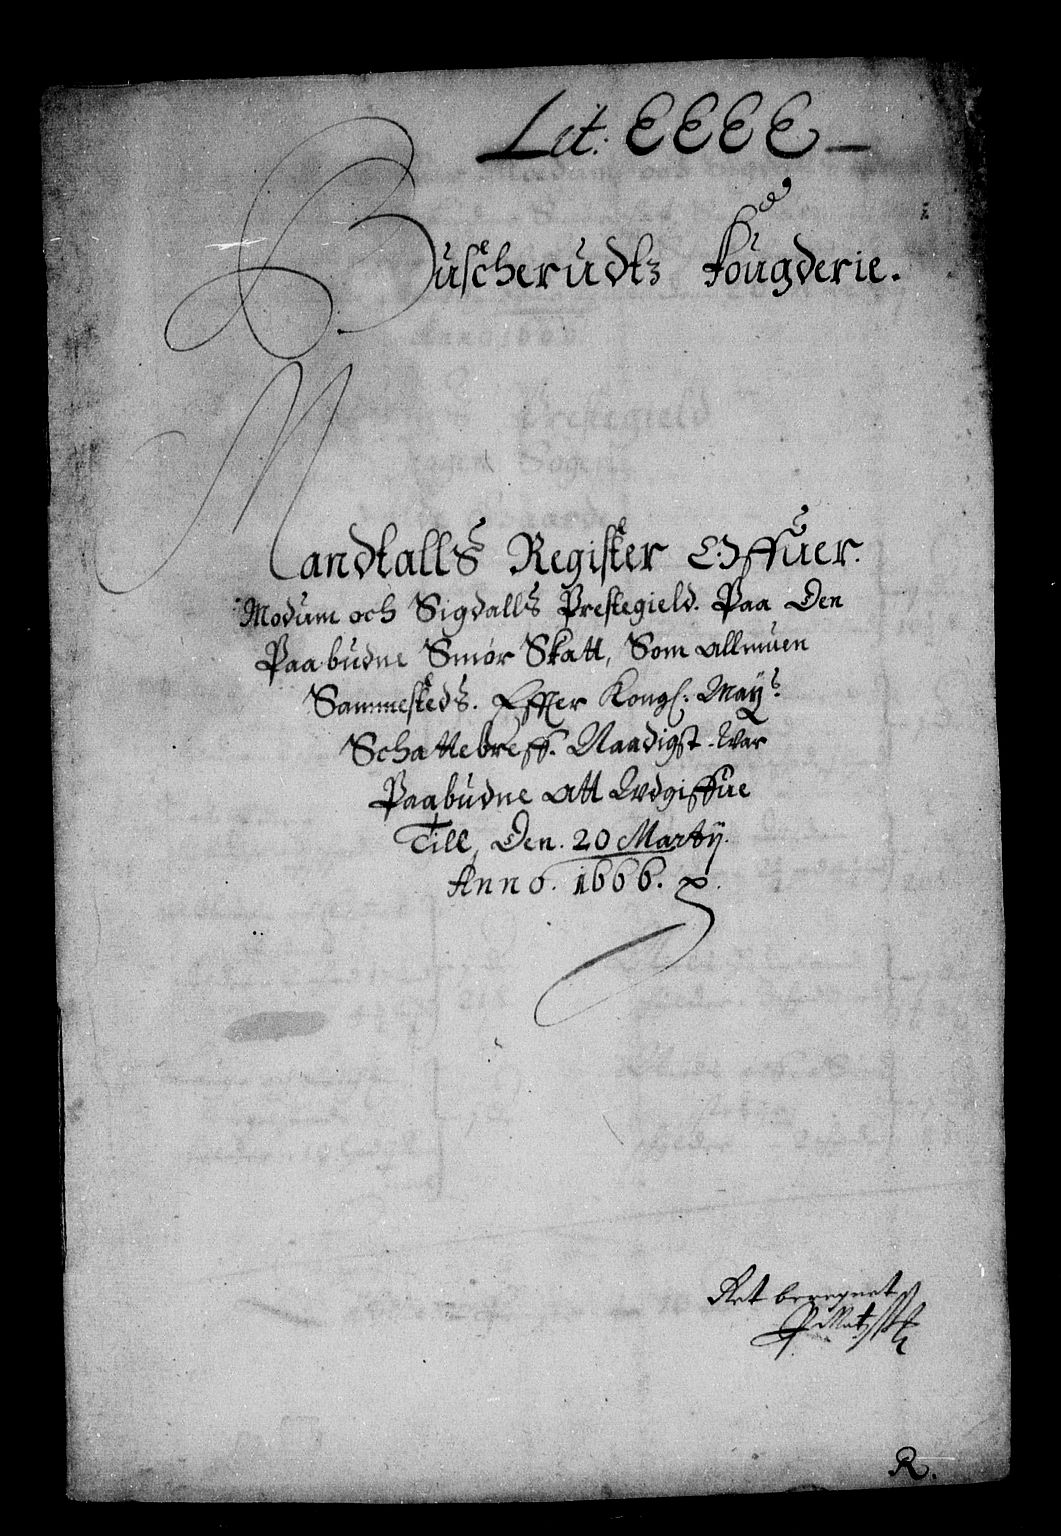 Lit: EEEE
Buscherudtz fougderie.
Mandtalls Register Offuer.
Modum och Sigdalls Prestegield. Paa Den
Paabudne Smør Skatt, Som allmuen
Sammesteds. Effter Kongl: May:s
Schattebreff. Naadigst. War
Paabudne att Wdgiffue
Till, Den. 20 Martÿ.
Anno. 1666.
Ret beregnet
R.